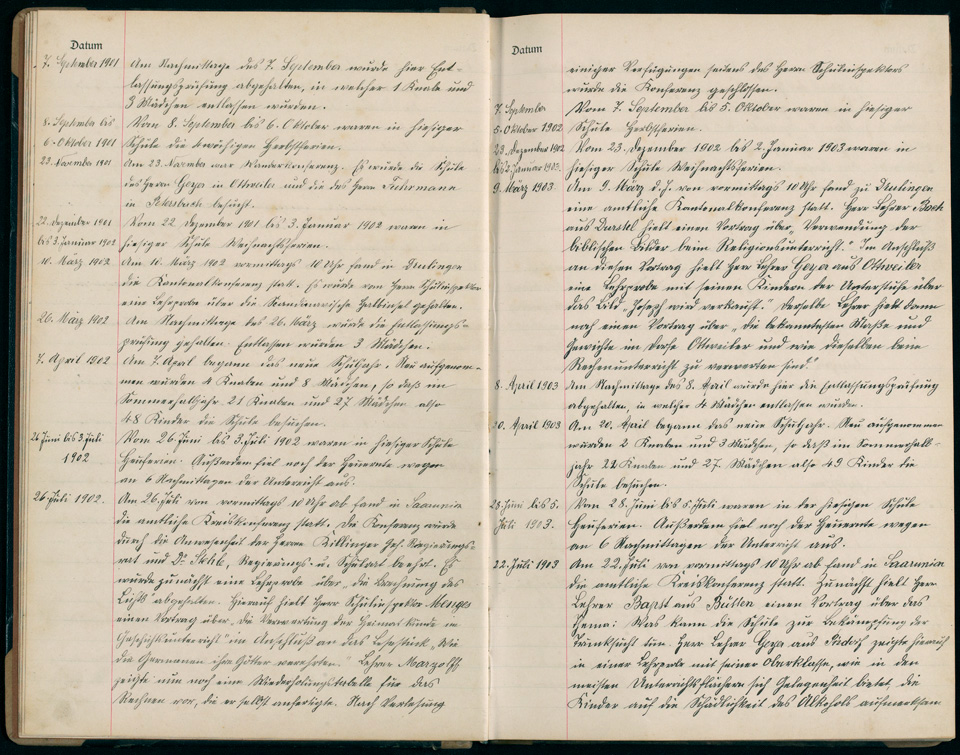 Datum
7. September 1901 Am Nachmittage des 7. September wurde hier Ent-
lassungsprüfung abgehalten, in welcher 1 Knabe und
3 Mädchen entlassen wurden.
8. September bis Vom 8. September bis 6. Oktober waren in hiesiger
6. Oktober 1901 Schule die Herbstferien.
23. November 1901 Am 23. November war Wanderkonferenz. Es wurde die Schule
des Herrn Geya in Ottweiler und die des Herrn Fuhrmann
in Petersbach besucht.
22. Dezember 1901 Vom 22. Dezember 1901 bis 3. Januar 1902 waren in
bis 3. Januar 1902 hiesiger Schule Weihnachtsferien.
10. März 1902 Am 10. März 1902 vormittags 10 Uhr fand in Drulingen
die Kantonalkonferenz statt. Es wurde von Herrn Schulinspektor
eine Lehrprobe über die Skandinavische Halbinsel gehalten.
26. März 1902 Am Nachmittage des 26. März wurde die Entlassungs-
prüfung gehalten. Entlassen wurden 3 Mädchen.
7. April 1902 Am 7. April begann das neue Schuljahr. Neu aufgenom-
men wurden 4 Knaben und 8 Mädchen, so daß im
Sommerhalbjahr 21 Knaben und 27 Mädchen also
48 Kinder die Schule besuchen.
26 Juni bis 3. Juli Vom 26. Juni bis 3. Juli 1902 waren in hiesiger Schule
1902 Heuferien. Außerdem fiel noch der Heuernte wegen
an 6 Nachmittagen der Unterricht aus.
26. Juli 1902. Am 26. Juli von vormittags 10 Uhr ab fand in Saarunion
die amtliche Kreiskonferenz statt. Die Konferenz wurde
durch die Anwesenheit der Herren Killinger Geh. Regierungs-
rat und Dr. Stehle, Regierungs- u. Schulrat beehrt. Es
wurde zunächst eine Lehrprobe über „die Brechung des
Lichts abgehalten. Hierauf hielt Herr Schulinspektor Menges
einen Vortrag über „die Verwertung der Heimatkunde im
Geschichtsunterricht" im Anschluß an das Lesestück „Wie
die Germanen ihre Götter verehrten." Lehrer Marzolff
zeigte nun noch eine Wiederholungstabelle für das
Rechnen vor, die er selbst anfertigte. Nach Verlesung
Datum
einiger Verfügungen seitens des Herrn Schulinspektors
wurde die Konferenz geschlossen.
7. September Vom 7. September bis 5. Oktober waren in hiesiger
5. Oktober 1902 Schule Herbstferien.
23. Dezember 1902 Vom 23. Dezember 1902 bis 2. Januar 1903 waren in
bis 2. Januar 1903. hiesiger Schule Weihnachtsferien.
9. März 1903 Am 9. März d. J. von vormittags 10 Uhr fand zu Drulingen
eine amtliche Kantonalkonferenz statt. Herr Lehrer Bach
aus Durstel hielt einen Vortrag über „Verwendung der
biblischen Bilder beim Religionsunterricht." Im Anschluß
an diesen Vortrag hielt Herr Lehrer Geya aus Ottweiler
eine Lehrprobe mit seinen Kindern der Unterstufe über
das Bild „Joseph wird verkauft." Derselbe Lehrer hielt dann
noch einen Vortrag über „die bekanntesten Maße und
Gewichte im Dorfe Ottweiler und wie dieselben beim
Rechenunterricht zu verwerten sind."
8. April 1903 Am Nachmittage des 8. April wurde hier die Entlassungsprüfung
abgehalten, in welcher 4 Mädchen entlassen wurden.
20. April 1903 Am 20. April begann das neue Schuljahr. Neu aufgenommen
wurden 2 Knaben und 3 Mädchen, so daß im Sommerhalb-
jahr 22 Knaben und 27 Mädchen also 49 Kinder die
Schule besuchen.
28. Juni bis 5. Vom 28. Juni bis 5. Juli waren in der hiesigen Schule
Juli 1903. Heuferien. Außerdem fiel noch der Heuernte wegen
an 6 Nachmittagen der Unterricht aus.
22. Juli 1903 Am 22. Juli von vormittags 10 Uhr ab fand in Saarunion
die amtliche Kreiskonferenz statt. Zunächst hielt Herr
Lehrer Bapst aus Bütten einen Vortrag über das
Thema: Was kann die Schule zur Bekämpfung der
Trunksucht tun. Herr Lehrer Geya aus zeigte hierauf
in einer Lehrprobe mit seiner Oberklasse, wie in den
meisten Unterrichtsfächern sich Gelegenheit bietet, die
Kinder auf die Schädlichkeit des Alkohols aufmerksam